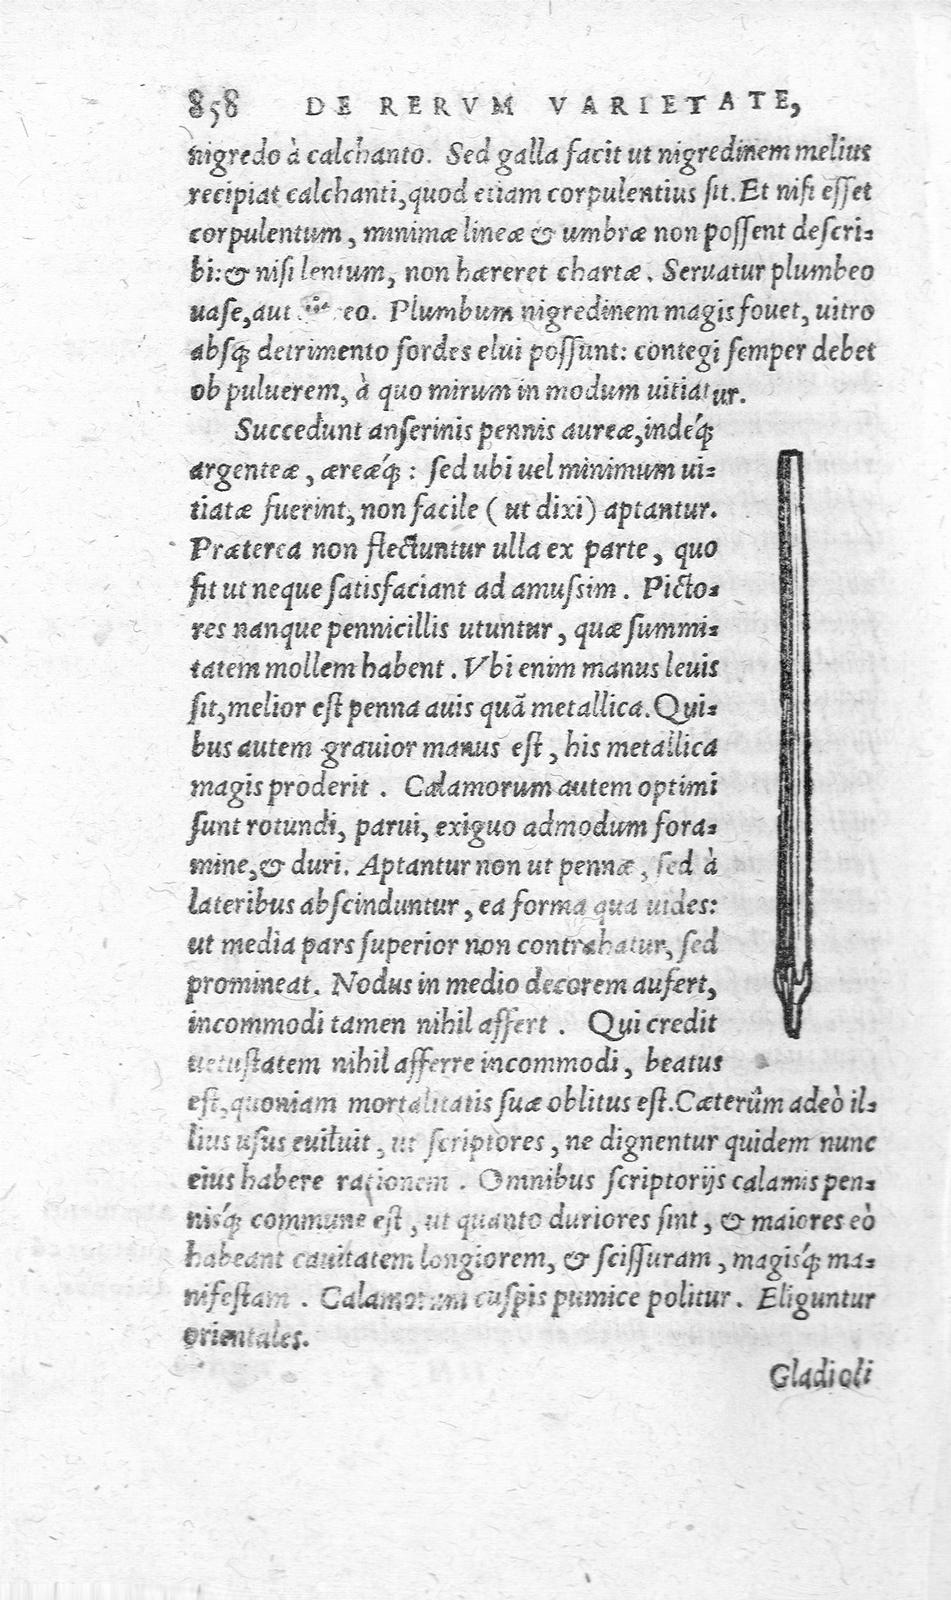 858 DE RERVM VARIETATE,
nigredo à calchanto. Sed galla facit ut nigredinem melius
recipiat calchanti, quod etiam corpulentius ſit. Et niſi eſſet
corpulentum, minimæ lineæ & umbræ non poſſent deſcri-
bi: & niſi lentum, non hæreret chartæ. Seruatur plumbeo
uaſe, aut eo. Plumbum nigredinem magis fouet, uitro
abſq́; detrimento ſordes elui poſſunt: contegi ſemper debet
ob puluerem, à quo mirum in modum uitiatur.
Succedunt anſerinis pennis aureæ, indeq́;
argenteæ, æreæq́;: ſed ubi uel minimum ui-
tiatæ fuerint, non facile (ut dixi) aptantur.
Præterea non flectuntur ulla ex parte, quo
fit ut neque ſatisfaciant ad amuſsim. Picto-
res nanque pennicillis utuntur, quæ ſummi-
tatem mollem habent. Vbi enim manus leuis
ſit, melior eſt penna auis quã metallica. Qui-
bus autem grauior manus eſt, his metallica
magis proderit. Calamorum autem optimi
ſunt rotundi, parui, exiguo admodum fora-
mine, & duri. Aptantur non ut pennæ, ſed à
lateribus abſcinduntur, ea forma qua uides:
ut media pars ſuperior non contrahatur, ſed
promineat. Nodus in medio decorem aufert,
incommodi tamen nihil affert. Qui credit
uetuſtatem nihil afferre incommodi, beatus
eſt, quoniam mortalitatis ſuæ oblitus eſt. Cæterûm adeò il-
lius uſus euiluit, ut ſcriptores, ne dignentur quidem nunc
eius habere rationem. Omnibus ſcriptorijs calamis pen-
niſq́; commune eſt, ut quanto duriores ſint, & maiores eò
habeant cauitatem longiorem, & ſciſſuram, magiſq́; ma-
nifeſtam. Calamorum cuſpis pumice politur. Eliguntur
orientales.
Gladioli